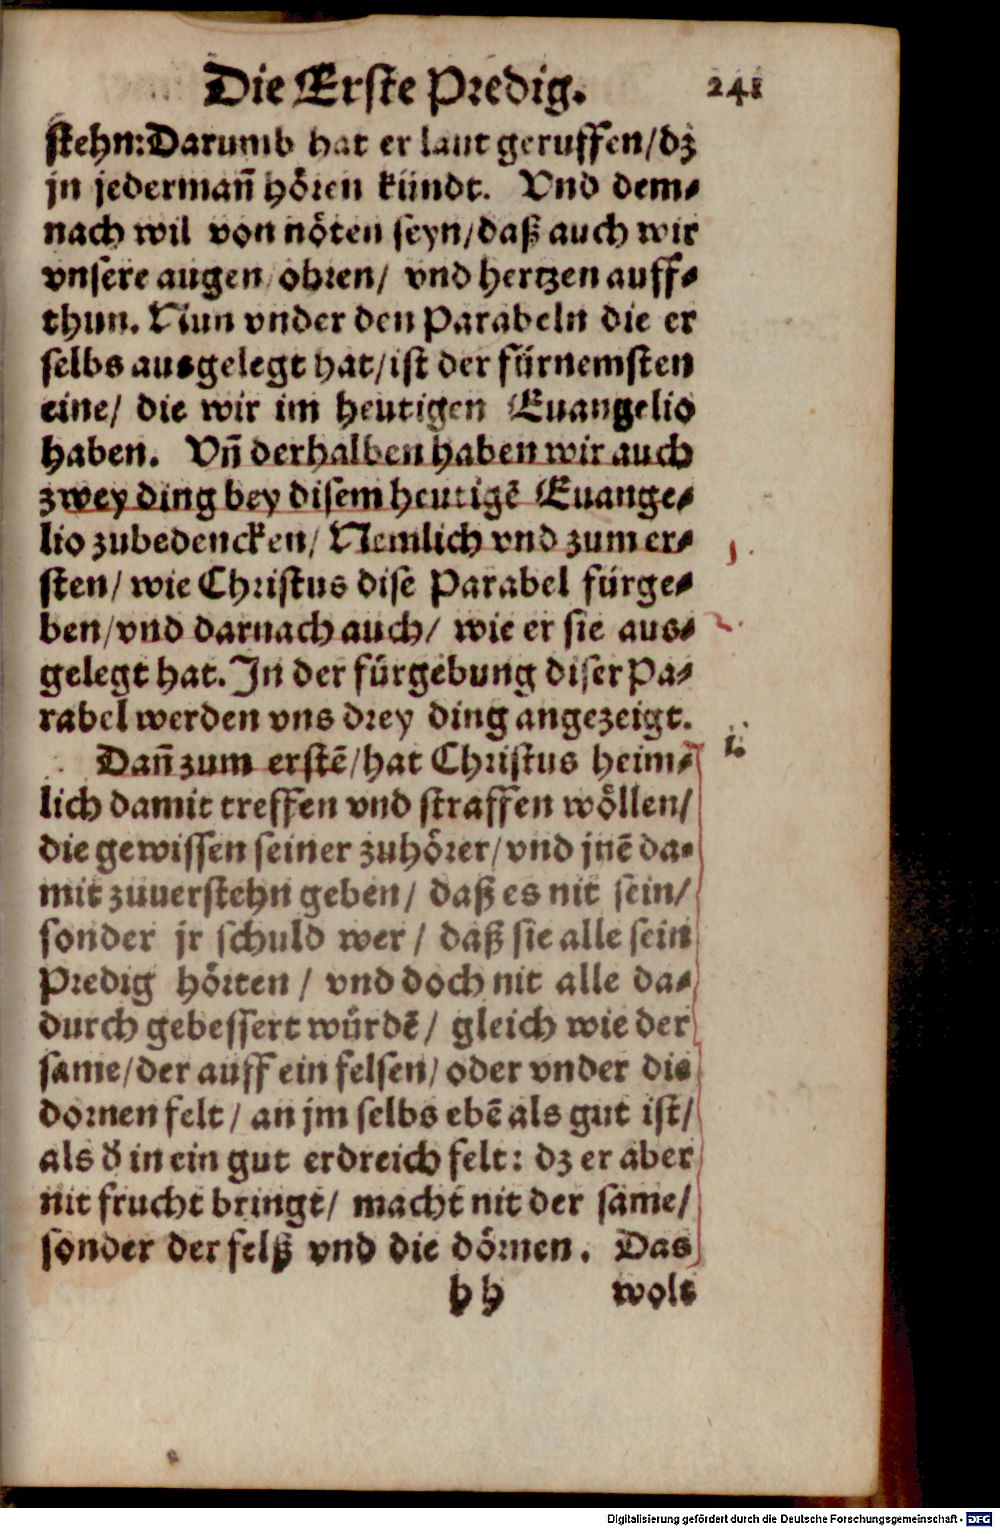 Die Erste Predig. 241
stehn: Darumb hat er laut geruffen/ dz
jn jedermañ hören kündt. Vnd dem-
nach wil von nöten seyn/ daß auch wir
vnsere augen/ ohren/ vnd hertzen auff-
thun. Nun vnder den Parabeln die er
selbs ausgelegt hat/ ist der fürnemsten
eine/ die wir im heutigen Euangelio
haben. Vñ derhalben haben wir auch
zwey ding bey disem heutigẽ Euange-
lio zubedencken/ Nemlich vnd zum er-
sten/ wie Christus dise Parabel fürge-
ben/ vnd darnach auch/ wie er sie aus-
gelegt hat. In der fürgebung diser Pa-
rabel werden vns drey ding angezeigt.
Dañ zum erstẽ/ hat Christus heim-
lich damit treffen vnd straffen wöllen/
die gewissen seiner zuhörer/ vnd jnẽ da-
mit zuuerstehn geben/ daß es nit sein/
sonder jr schuld wer/ daß sie alle sein
Predig hörten/ vnd doch nit alle da-
durch gebessert würdẽ/ gleich wie der
same/ der auff ein felsen/ oder vnder die
dornen felt/ an jm selbs ebẽ als gut ist/
als d̕ in ein gut erdreich felt: dz er aber
nit frucht bringt/ macht nit der same/
sonder der felß vnd die dörnen. Das
hh wolt
Digitalisierung gefördert durch die Deutsche Forschungsgemeinschaft - DFG